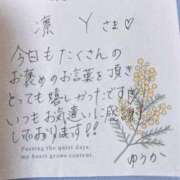 凛 Yさま♡
今日もたくさんの
お褒めのお言葉を頂き
とっても嬉しかったです
いつもお気遣いに感謝
しております!!
Passing the quiet days,
my heart grows content.
ゆうか